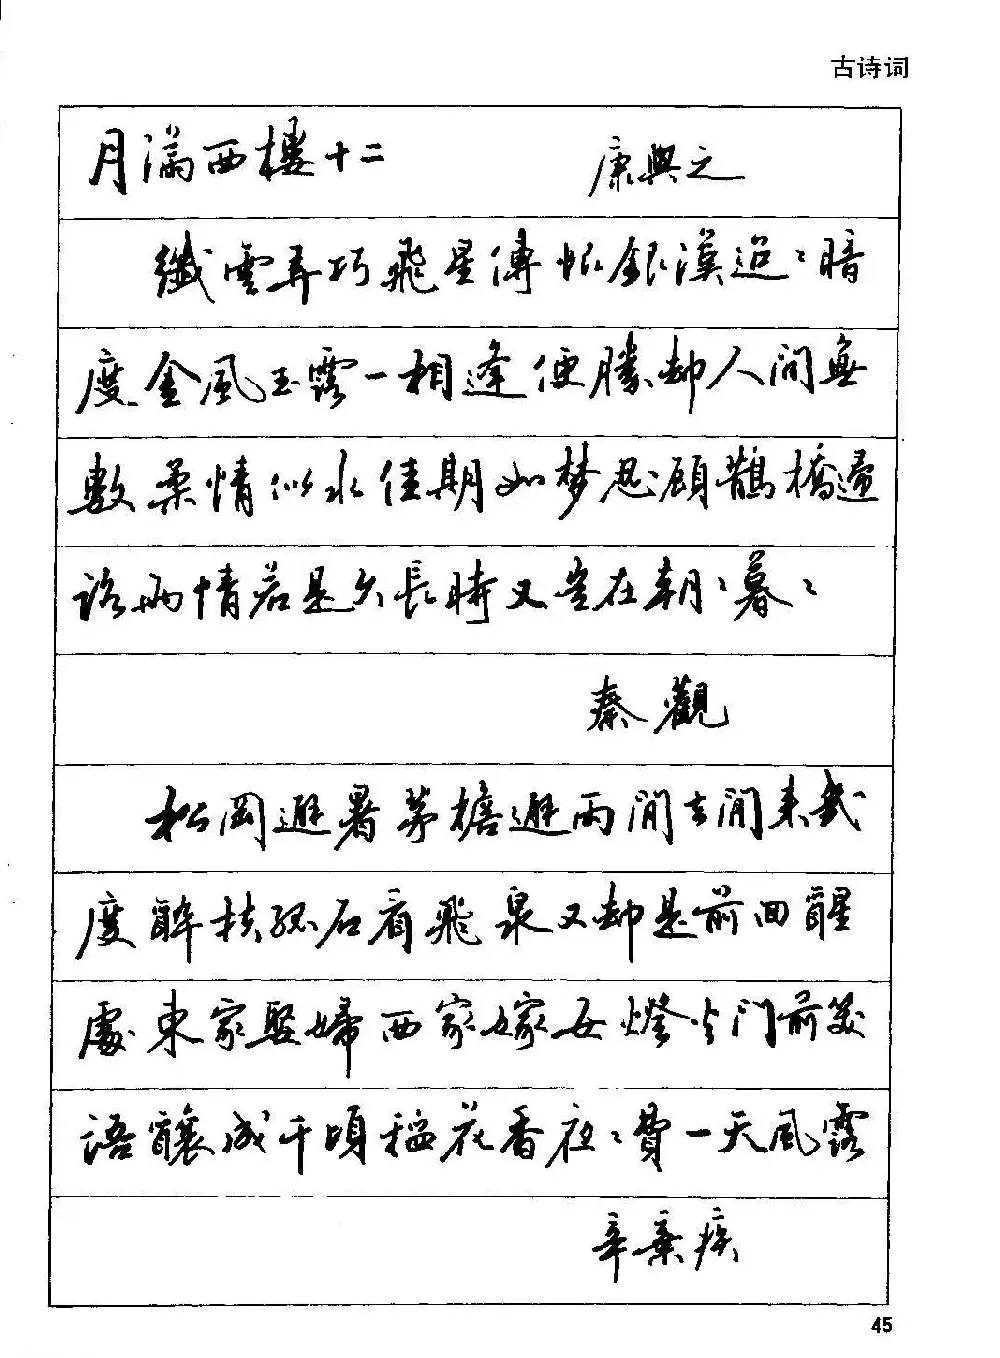 古诗词
月满西樓十二 康與之
纖雲弄巧飛星傳恨銀漢迢〻暗
度金風玉露一相逢便勝却人間無
數柔情似水佳期如梦忍顧鵲橋歸
路兩情若是久長時又豈在朝〻暮〻
秦觀
松岡避暑茅檐避雨閒去閒来幾
度醉扶孤石看飛泉又却是前回醒
處東家娶婦西家嫁女燈火門前笑
語釀成千頃稻花香夜〻費一天風露
辛棄疾
45